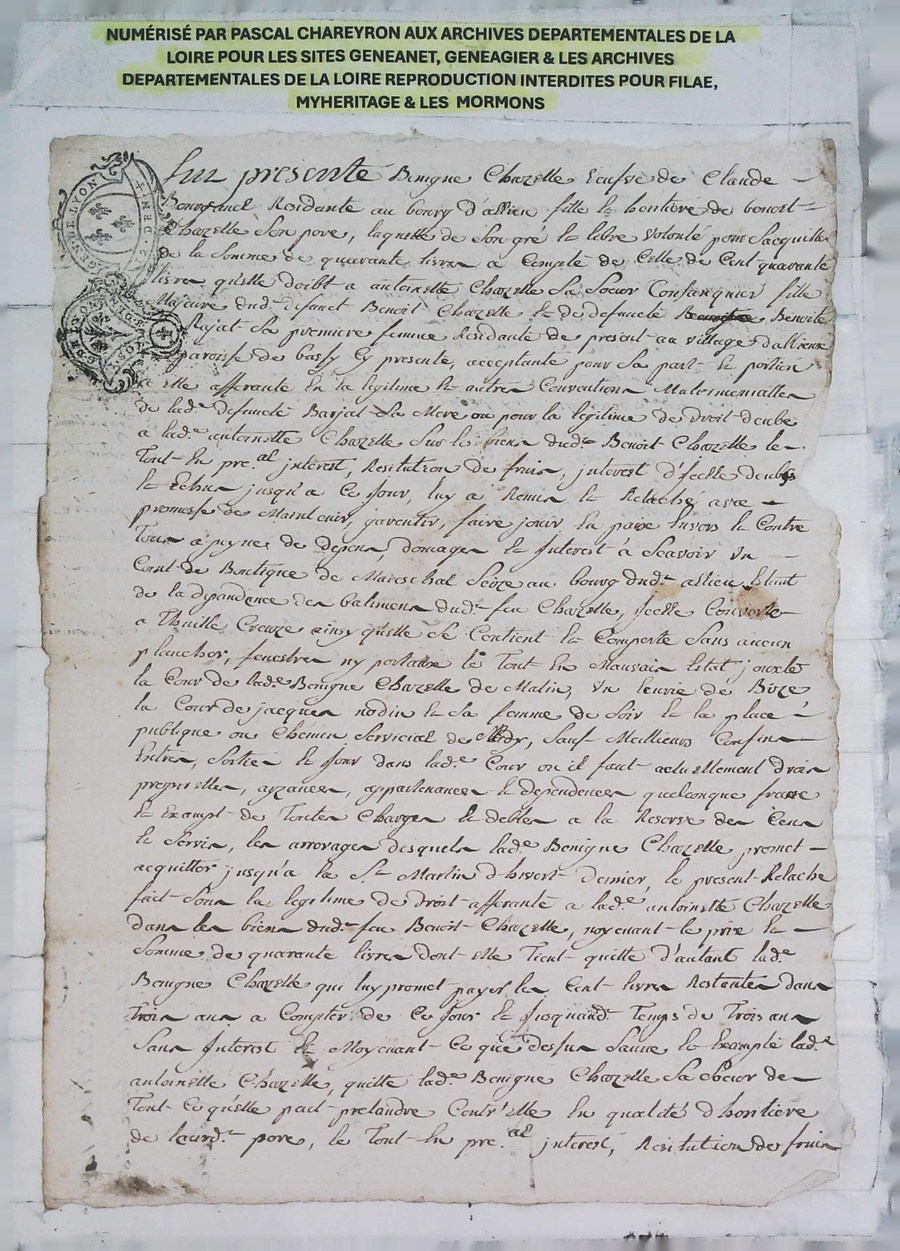 NUMÉRISÉ PAR PASCAL CHAREYRON AUX ARCHIVES DEPARTEMENTALES DE LA
LOIRE POUR LES SITES GENEANET, GENEAGIER & LES ARCHIVES
DEPARTEMENTALES DE LA LOIRE REPRODUCTION INTERDITES POUR FILAE,
MYHERITAGE & LES MORMONS
GEN. DE LYON
Fut presente Benigne Chazelle veufve de Claude
Residante au bourg d'allieu fille et heritiere de benoit
Chazelle son pere, laquelle de son gré et libre volonté pour s'acquitter
de la somme de quarante livres a compte de celle de Cent quarante
livres qu'elle doibt a antoinette Chazelle sa soeur Consanguine fille
Majeure dud. defunct Benoit Chazelle et de defuncte Benoite
Bajat sa premiere femme Residante de present au village d'allieux
paroisse de bassy Cy presente, acceptante pour sa part et portion
a elle afferante En la legitime et autres Conventions Matrimonialles
de lad.e defuncte Barjat sa Mere ou pour la legitime de droit deube
a lad.e antoinette Chazelle sur les biens dud. Benoit Chazelle le
Tout En pre.al interest, Restitution de fruits, interest d'jcelle deubs
et Echus jusqu'a Ce Jour, luy a Remis et Relaché avec
promesse de Maintenir, garentir, faire jouir En paix Envers et Contre
Tous a peyne de depens, domages et Interest à Scavoir un
Corps de Boutique de Mareschal Scize au bourg dud. allieu Estant
de la dependance des batimens dud. feu Chazelle, jcelle Couverte
a Thuille Creuze ainsy qu'elle se Contient et Comporte sans aucun
plancher, fenestres ny portaux le Tout En Mauvais Estat jouxte
la Cour de lad.e Benigne Chazelle de Matin, de Bize
la Cour de jacques nodin et sa femme de Soir et la place
publique ou Chemin Servicial de Midy, Sauf Meilleurs Confins
Entrées, Sorties et Jour dans lad.e Cour ou il faut actuellement droits
proprietes, ayzances, appartenances et dependences quelconque franc
et Exempt de Toutes Charges et debtes a la Reserve des Cens
et Servis, les arrerages desquels lad.e Benigne Chazelle promet
acquitter jusqu'a la St Martin d'hivert dernier, le present Relache
fait pour la legitime de droit afferante a lad.e antoinette Chazelle
dans les biens dud. feu Benoit Chazelle, moyenant le prix et
Somme de quarante livres dont elle Tient quitte d'autant lad.e
Benigne Chazelle qui luy promet payer les Cent livres Restantes dans
Trois ans a Compter de Ce Jour et Jusquaud. Temps de Trois ans
Sans Interest et Moyenant Ce que dessus lad.e
antoinette Chazelle, quitte lad.e Benigne Chazelle sa Soeur de
Tout Ce qu'elle peut pretandre Contr'elle En qualité d'heritiere
de leurd. pere, le Tout En pre.al interest, Restitution de fruits